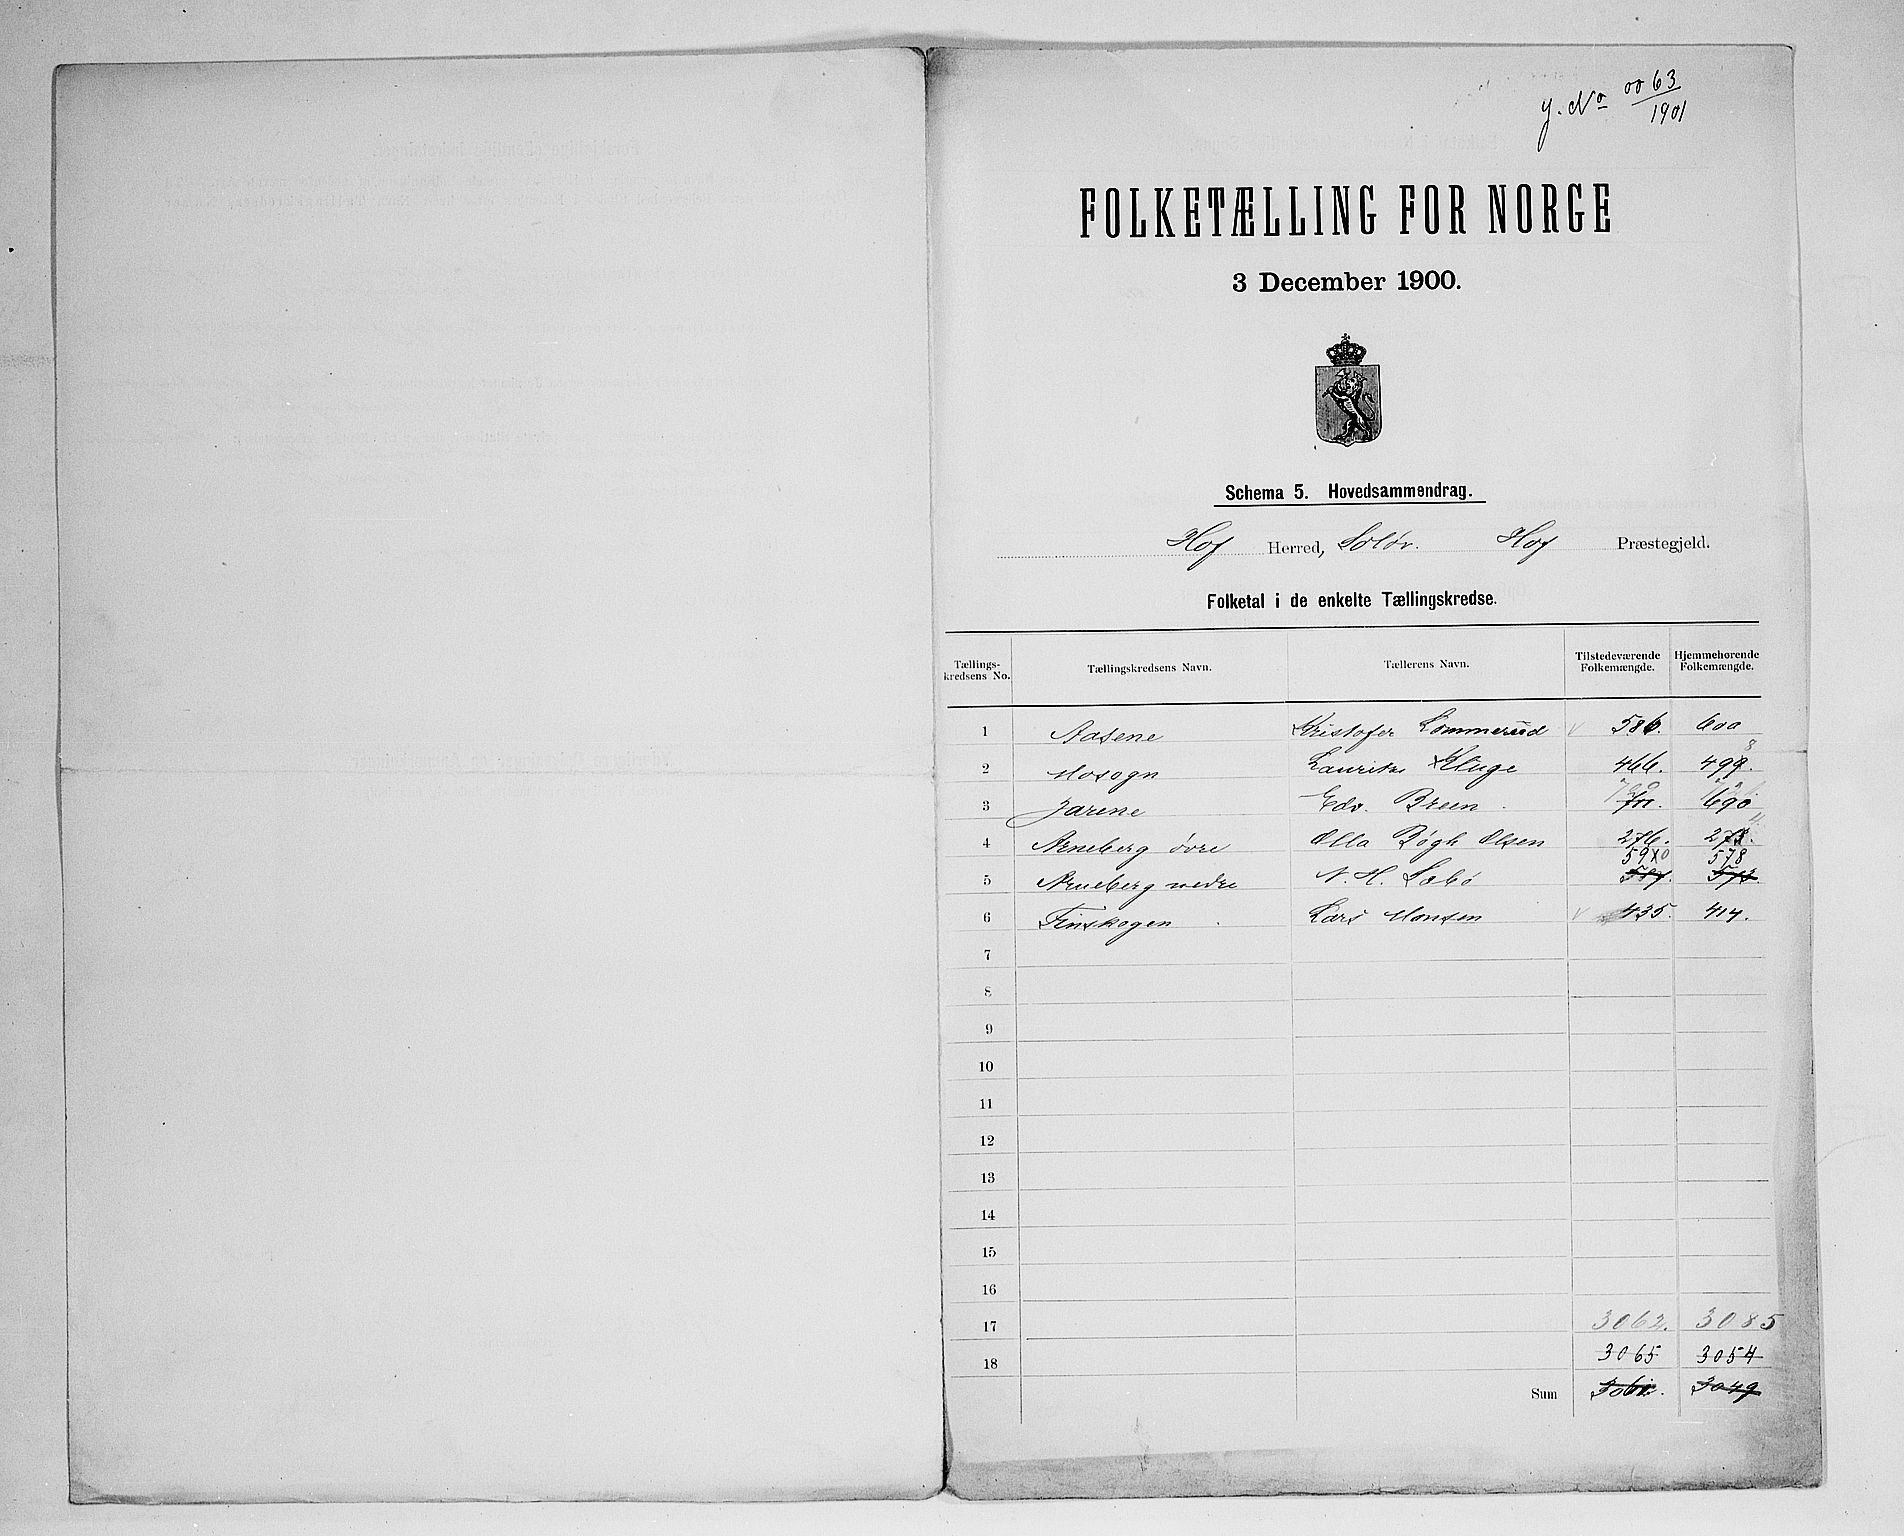 J. No 0063
1901
FOLKETÆLLING FOR NORGE
3 December 1900.
Schema 5. Hovedsammendrag.
Hof Herred, Solør. Hof Præstegjeld.
Folketal i de enkelte Tællingskredse.
Tællings-kredsens No. Tællingskredsens Navn. Tællerens Navn. Tilstedeværende Folkemængde. Hjemmehørende Folkemængde.
1 Aasene Kristofer Lommerud 586. 600
2 Mosogn Lauritz Kluge 466. 499.
3 Jarene Edv. Breen 690
4 Arneberg øvre Olla Bøgh Olsen 276.
590 578
5 Arneberg nedre N. H. Sæbø
6 Finskogen Lars Monsen 435. 414.
7
8
9
10
11
12
13
14
15
16
17 3062. 3085
18 3065 3054
Sum 3049